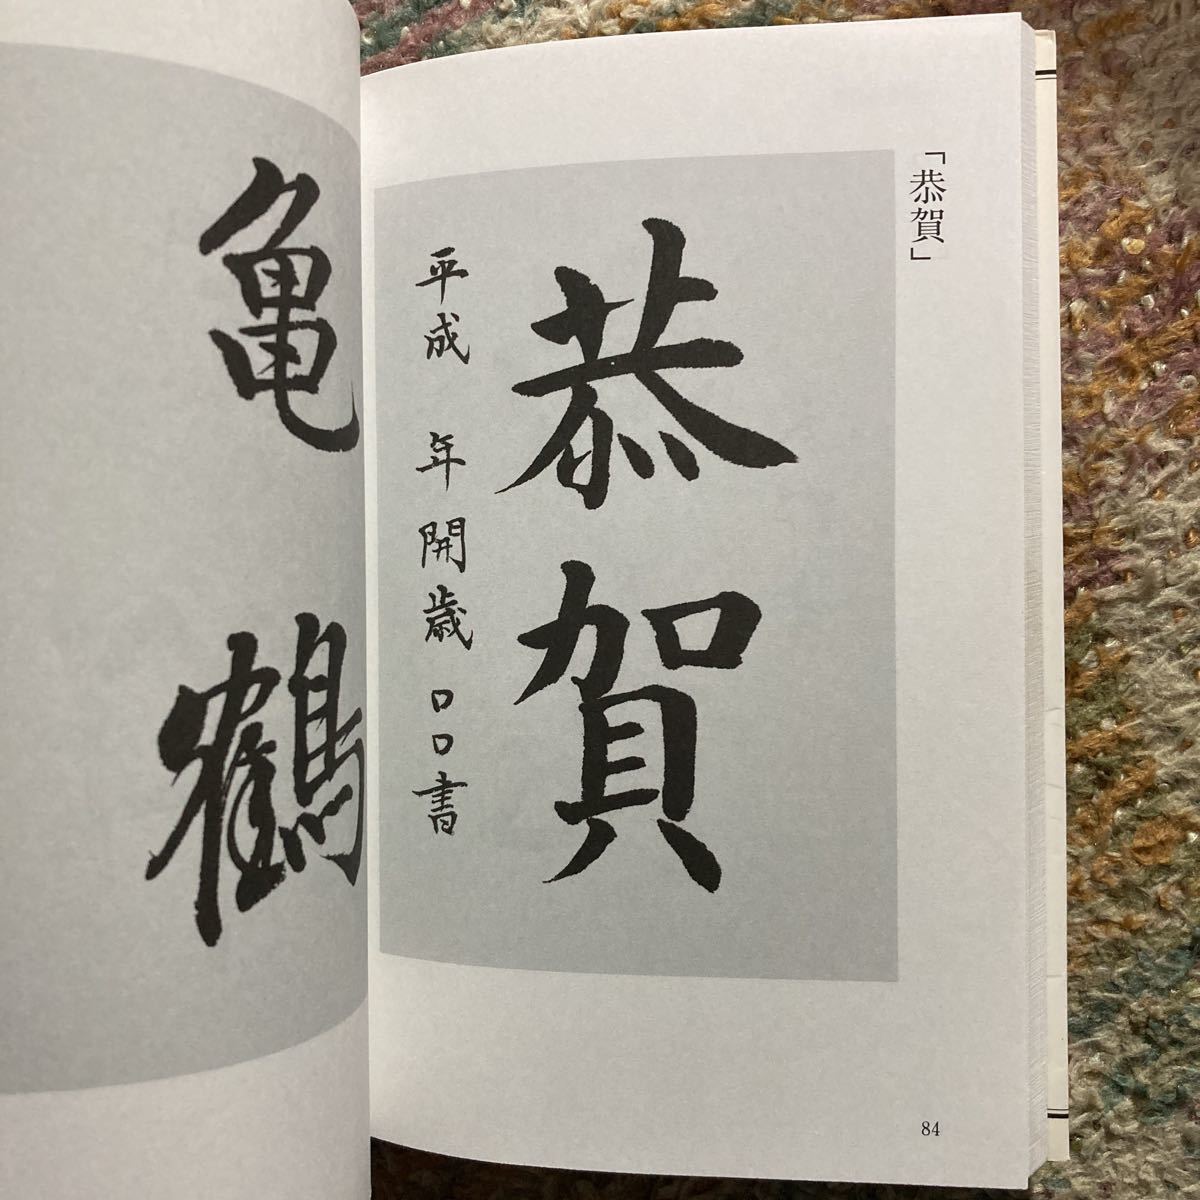 「恭賀」
恭賀
平成 年開歳 口口書
84
亀鶴